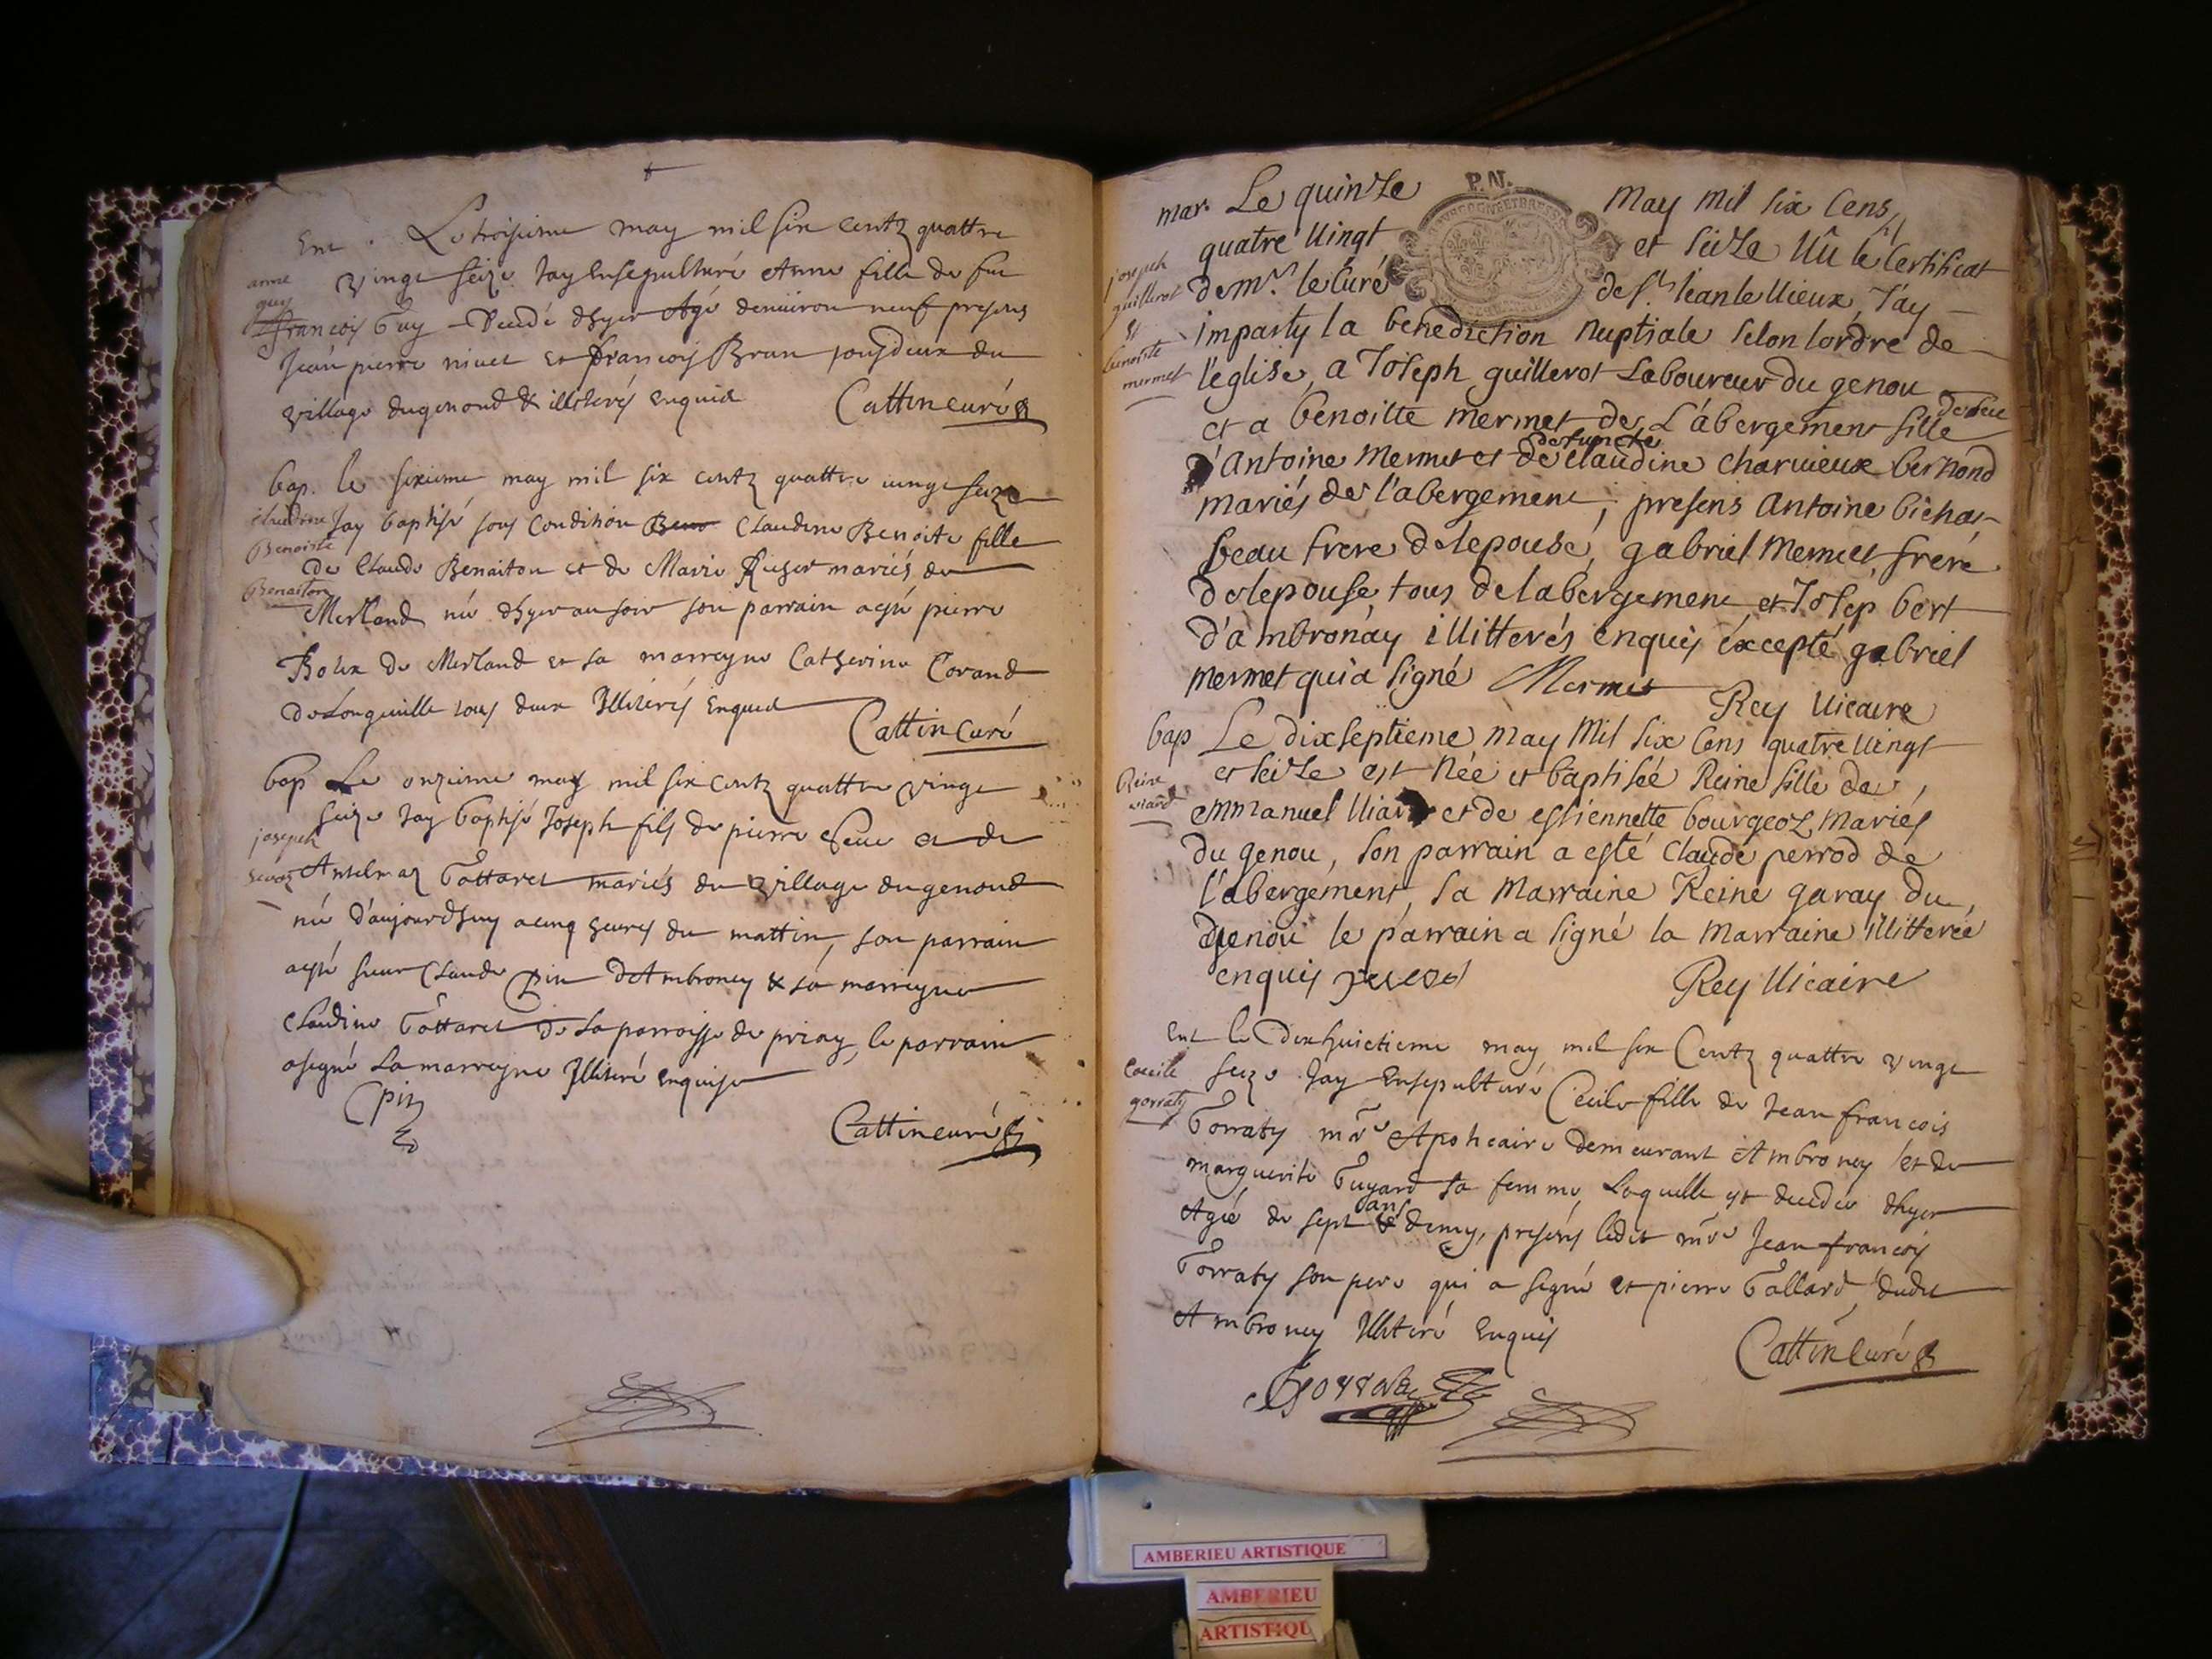 Ent . Le troisieme may mil six centz quattre
anne guy
vingt seize Jay Ensepulturé Anne fille de feu
francois Guy Decedé dhyer Agé denuiron neuf presens
Jean pierre niuet et francois Brun tousdeux du
village dugenoud & illiterés enquis Cattin curé
bap. le sixieme may mil six centz quattre vingt seize
claudine Benoiste Benaiton
Jay baptisé sous condition Claudine Benoite fille
de Claude Benaiton et de Marie mariés de
Merland né dhyer au soir son parrain aesté pierre
de Merland et sa marreyne Catherine Corand
de Longeuille tous deux Illiterés Enquis
Cattin Curé
bap Le onzieme may mil six centz quattre vingt
joseph
seize Jay baptisé Joseph fils de pierre et de
Antelmaz Gottaret mariés du village dugenoud
né d'aujourdhuy acinq heures du mattin, son parrain
aesté sieur Claude Pin d'Ambroney & sa marreyne
Claudine Gottaret de la parroisse de priay, le parrain
asigné La marreyne Illiteré Enquise
Cpin
Cattin curé
P.N.
mar. Le quinze may mil six Cens,
joseph guillerot et benoiste mermet
quatre Uingt et seize Uû le Certificat
de mr. le Curé de st. jean le Uieux, J'ay
imparty la benediction nuptiale selon lordre de
l'eglise, a Joseph guillerot Laboureur du genou
et a benoitte mermet de L'abergement fille de feu
d'Antoine mermet et de defuncte claudine charuieux bernond
mariés de l'abergement, presens Antoine bichat
beau frere de lepouse, gabriel mermet, frere
de lepouse, tous de labergement et Josep bert
d'ambronay illitterés enquis éxcepté gabriel
mermet qui a signé Mermet
Rey Uicaire
bap Le dixseptieme may Mil six Cens quatre Uingt
Reine viard
et seize est née et baptisée Reine fille de,
emmanuel Uiard et de estiennette bourgeoz mariés
du genou, son parrain a esté Claude perrod de
l'abergement, sa marraine Reine garay du,
genou le parrain a signé la marraine illitterée
enquis perrod Rey Uicaire
Ent le Dixhuictieme may mil six Centz quattre vingt
Cecile gorraty
seize Jay Ensepulturé Cecile fille de Jean francois
Gorraty mre Apoticaire demeurant Ambroney et de
marguerite Guyard sa femme, Laquelle est decedée dhyer
Agée de sept ans & demy, presens ledit mre Jean francois
Gorraty son pere qui a signé et pierre Gallard, dudit
Ambroney Illiteré Enquis
Cattin Curé
AMBERIEU ARTISTIQUE
AMBERIEU
ARTISTIQU